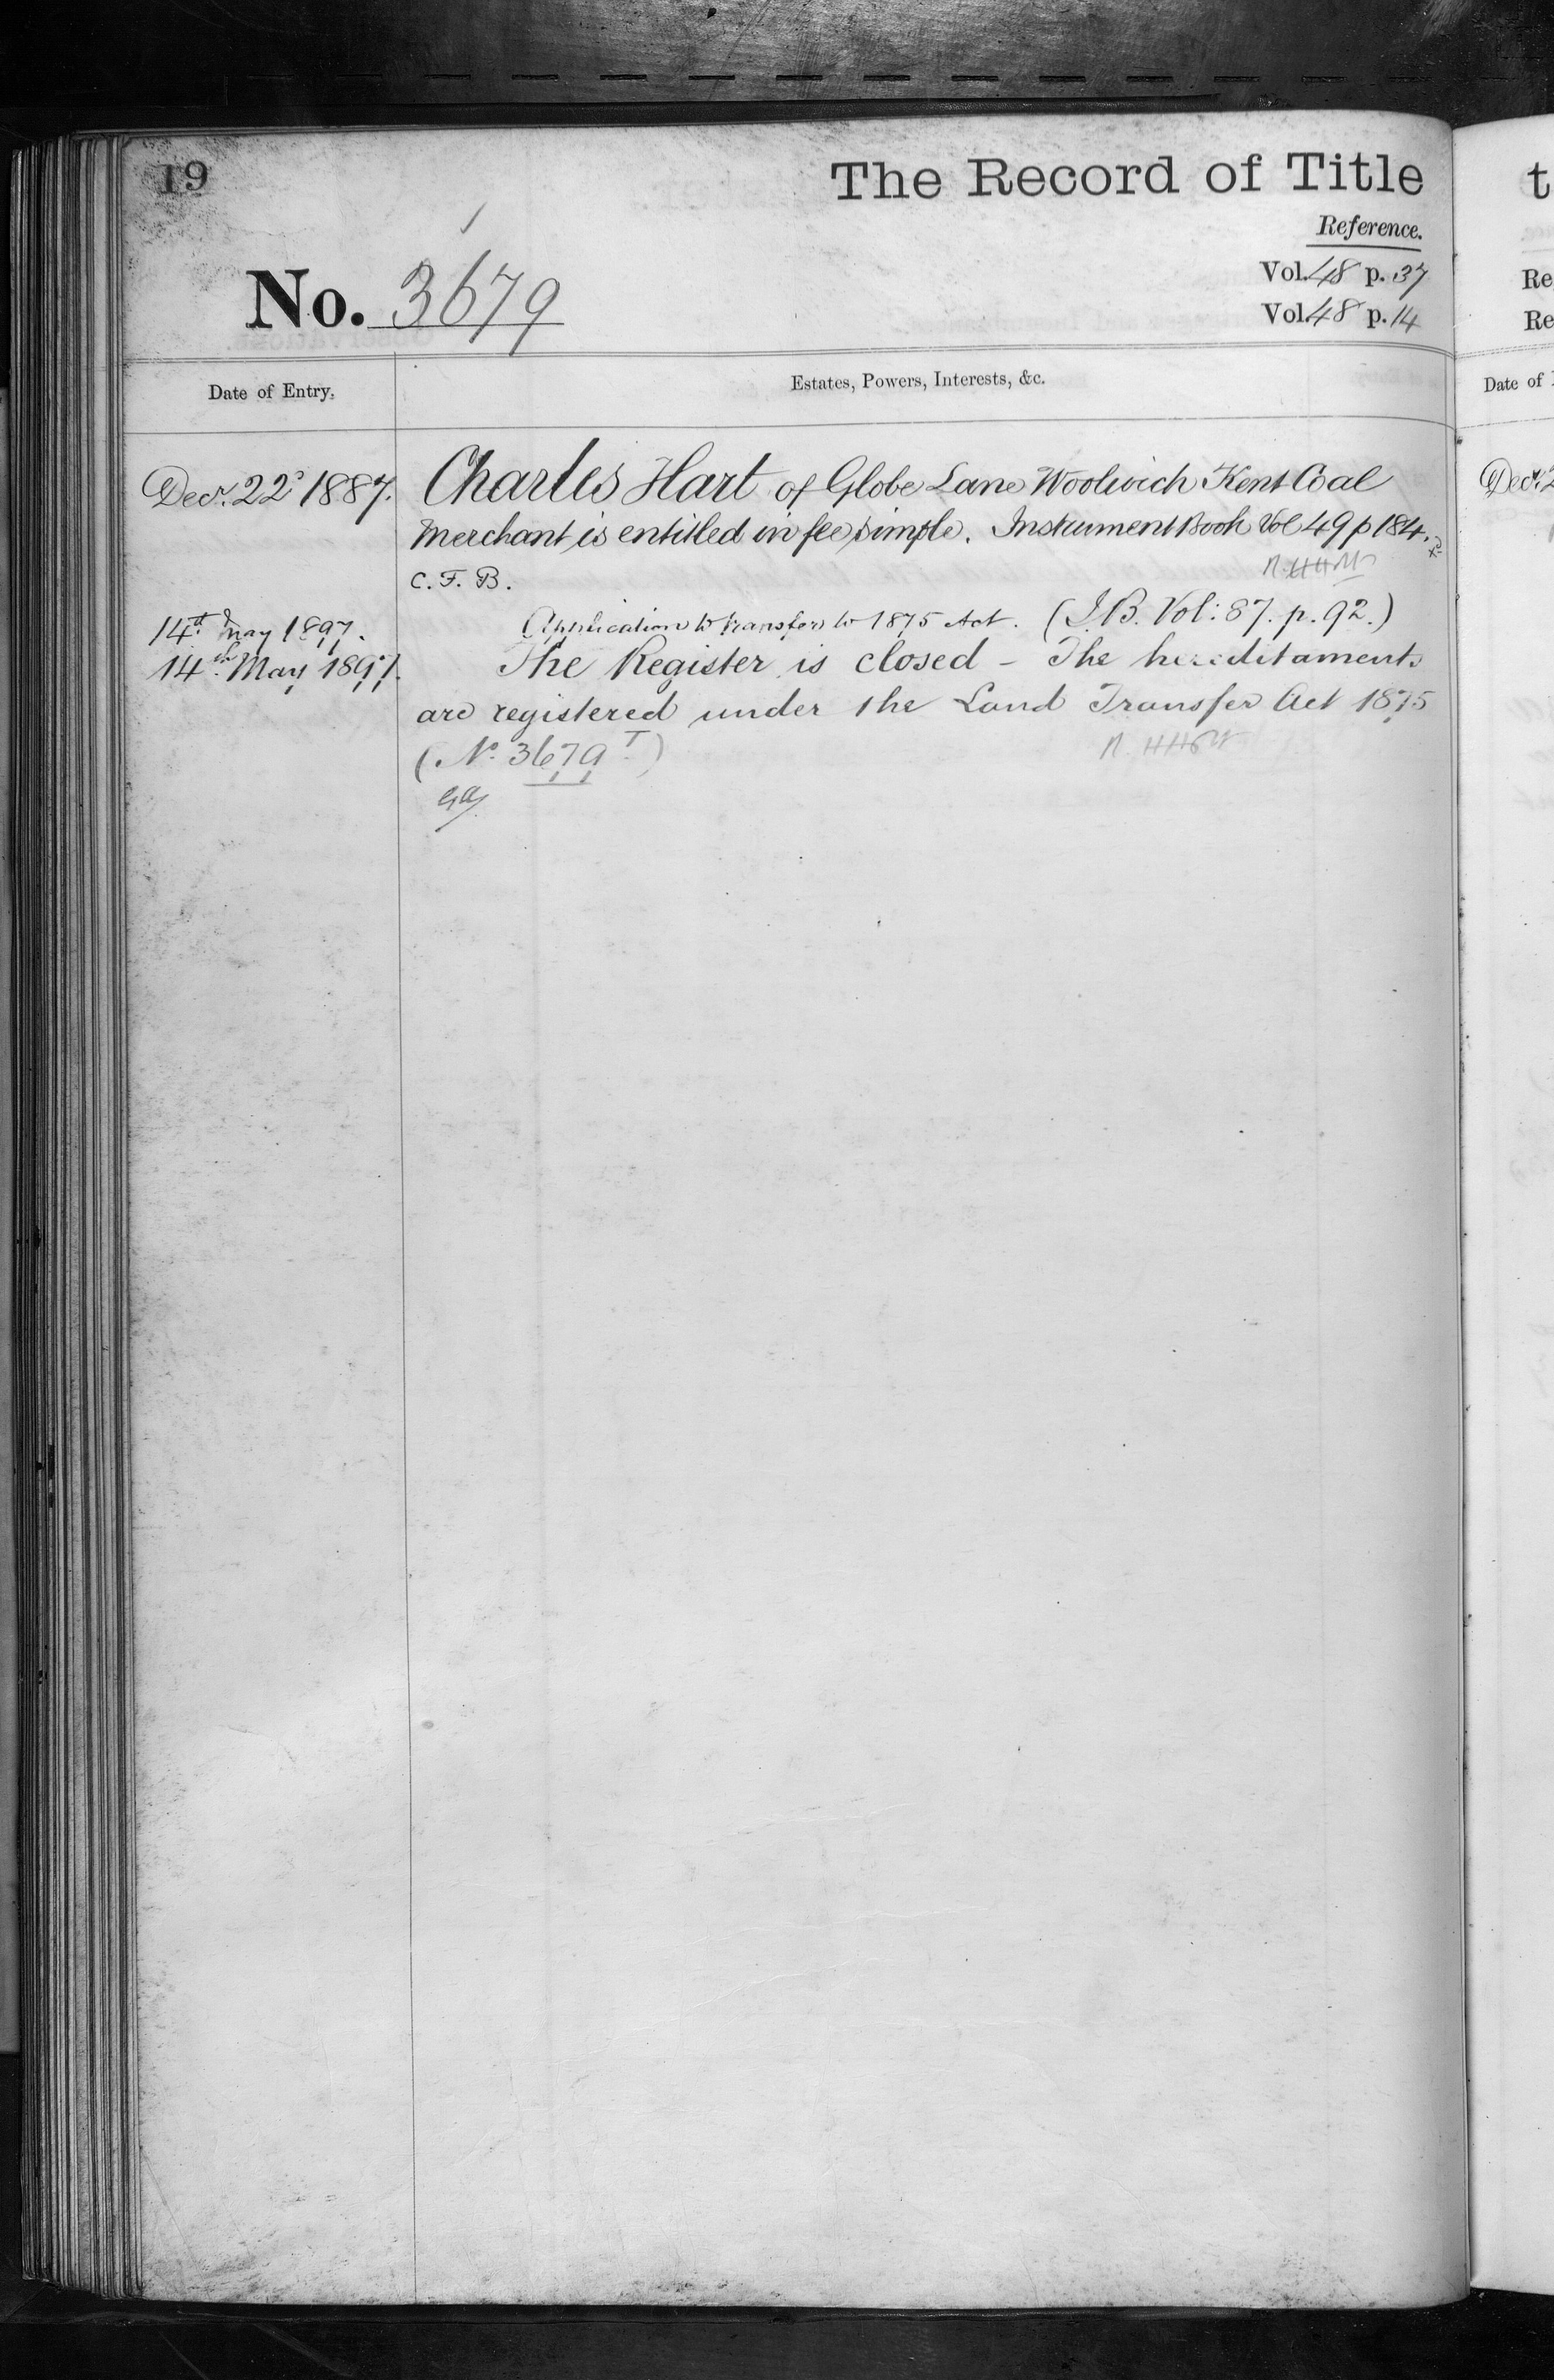 19
The Record of Title
Reference.
Vol. 48 p. 37
No. 3679
Vol. 48 p. 14
Date of Entry.
Estates, Powers, Interests, &c.
Decr. 22d 1887. Charles Hart of Globe Lane Woolwich Kent Coal
Merchant is entitled in fee simple. Instrument Book Vol 49 p 184.
C. F. B.
14th May 1897. Application to transfer to 1875 Act. (I.B. Vol: 87. p. 92.)
14th May 1897. The Register is closed - The hereditaments
are registered under the Land Transfer Act 1875
(No. 3679 T.)
t
Re
Re
Date of
Decr. 2